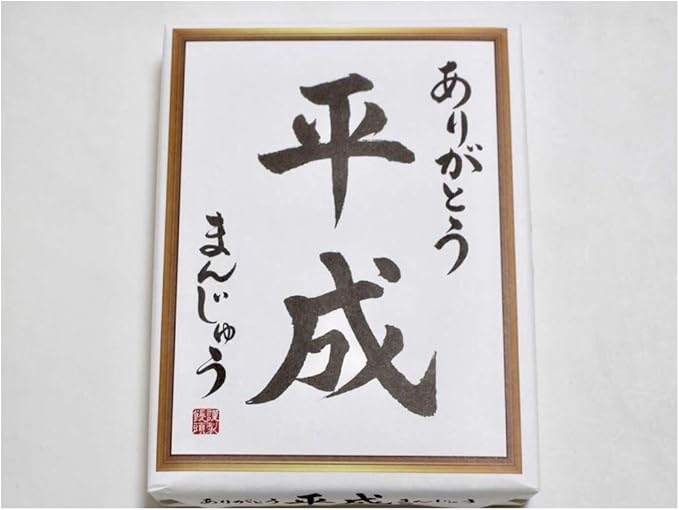 ありがとう
平成
まんじゅう
謹製
饅頭
ありがとう 平成 まんじゅう